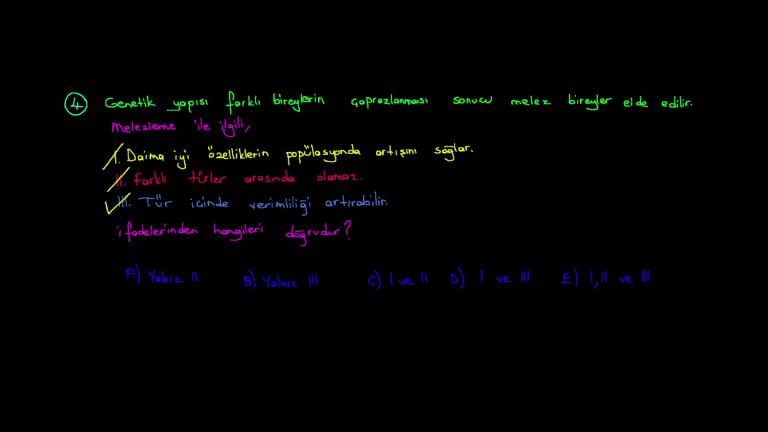 4 Genetik yapısı farklı bireylerin çaprazlanması sonucu melez bireyler elde edilir.
Melezleme ile ilgili,
I. Daima iyi özelliklerin popülasyonda artışını sağlar.
II. Farklı türler arasında olamaz.
III. Tür içinde verimliliği artırabilir.
ifadelerinden hangileri doğrudur?
A) Yalnız II B) Yalnız III C) I ve II D) I ve III E) I, II ve III